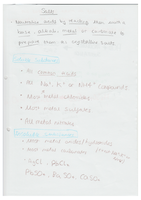 Salts
neutralise acids by reacting them with a
base, alkali, metal or carbonate to
prepare them as crystalline solids
Soluble Substances
• All common acids
• All Na⁺, K⁺ or NH₄⁺ compounds
• Most metal chlorides
• Most metal sulfates
• All metal nitrates
Insoluble Substances
• Most metal oxides/hydroxides
• Most metal carbonates
AgCl, PbCl₂
PbSO₄, BaSO₄, CaSO₄